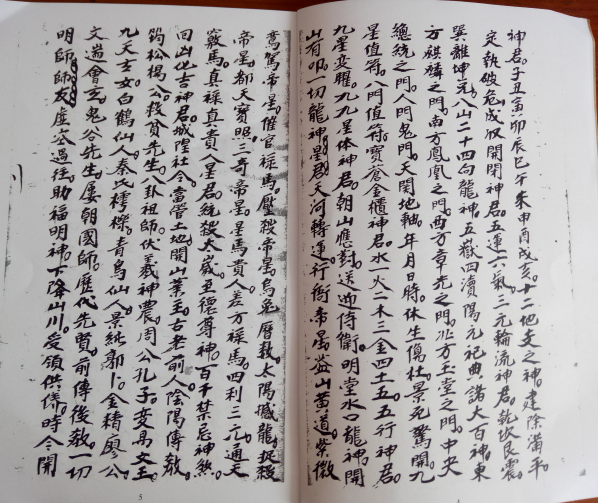 神君。子丑寅卯辰巳午未申酉戌亥。十二地支之神。建除满平。
定執破危成收開閉神君。五運六氣。三元輪流神君。乾坎艮震。
巽離坤兑。八山二十四向龍神。五嶽四瀆陽元祀典諸大百神。東
方麒麟之門。南方鳳凰之門。西方章光之門。北方玉堂之門。中央
總統之門。人門鬼門。天関地軸。年月日時。休生傷杜景死驚開。九
星值符。八門值符。寳倉金櫃神君。水一火二木三金四土五。五行神君。
九星変曜。九九星体神君。朝山應對。送迎侍衛。明堂水口龍神。開
山有叩。一切龍神星君。天河轉運。行衙帝星。蓋山黄道。紫微
鸾駕帝星。催官禄馬。壓殺帝星。烏兔曆数。太陽撼龍。捉殺
帝星。都天寳照。三奇帝星。星馬貴人。差方禄馬。四利三元。通天
竅馬。真禄真貴人星君。統殺太歲。至德尊神。百千禁忌神煞。
回凶化吉神君。城隍社令。當管土地。開山業主。古老前人。陰陽傳教。
筠松楊公。救貧先生。八卦祖師。伏羲神農。周公孔子。变易文王。
九天玄女。白鶴仙人。秦氏樗櫟。青烏仙人。景纯郭卜。金精廖公。
文遄會玄。鬼谷先生。屡朝國師。歷代先賢。前傳後教。一切
明師師友。虚空過往。助福明神。下降山川。爱領供俻。時今開
5
4